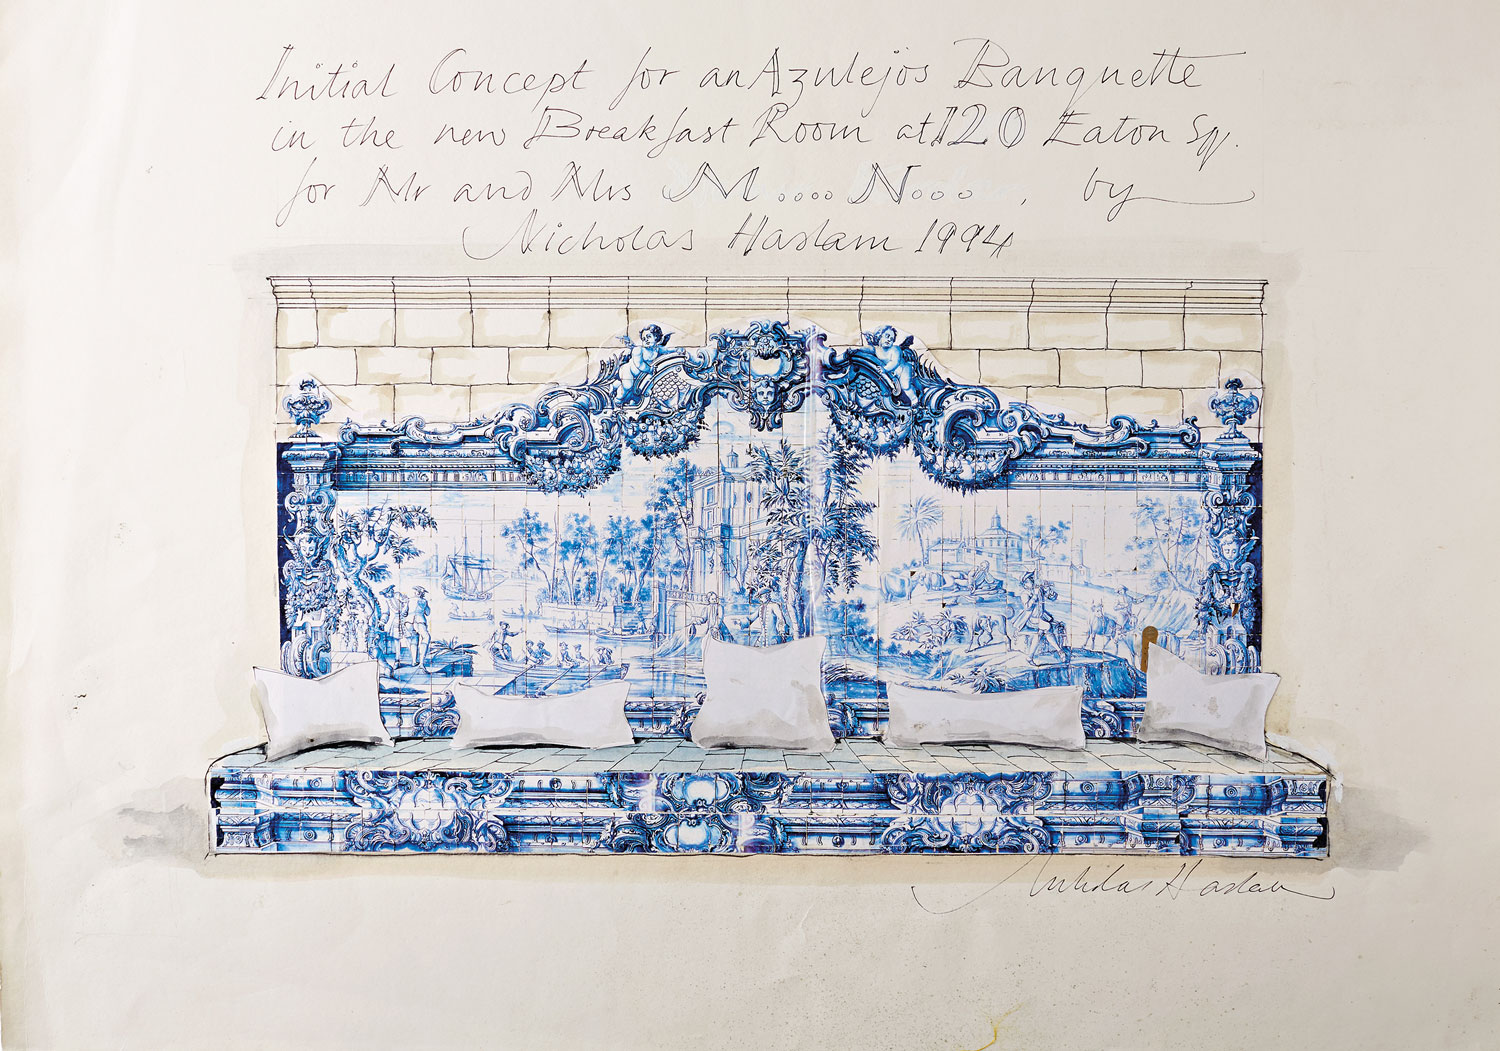 Initial Concept for an Azulejos Banquette
in the new Breakfast Room at 120 Eaton Sq.
for Mr and Mrs M.... N..., by
Nicholas Haslam 1994
Nicholas Haslam